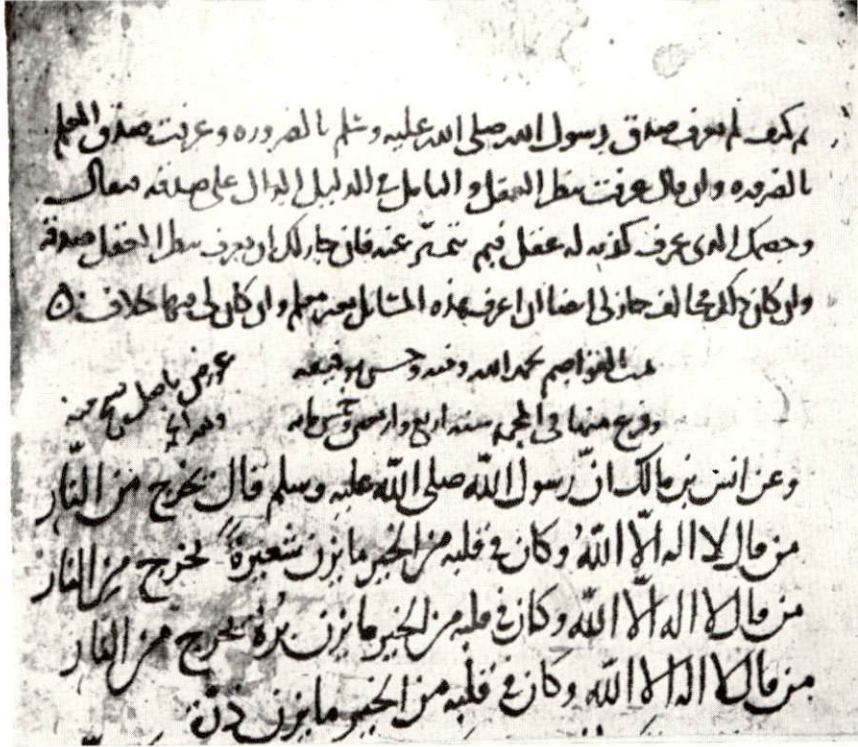 ثم كيف لم يعرف صدق رسول الله صلى الله عليه وسلم بالضروره وعرفت صدق المعلم
بالضروره وان قال عرفت بنظر العقل والتامل في الدليل الدال على صدقه فيقال
وخصمك الذي عرف كذبه له عقل فبم تتميز عنه فان جاز لك ان يعرف بنظر العقل صدقه
وان كان لك مخالف جاز لي ايضا ان اعرف هذه المسائل بغير معلم وان كان لي فيها خلاف
تمت القواصم بحمد الله ومنه وحسن توفيقه
وفرغ منها في المحرم سنه اربع واربعين وخمس مايه
عورض باصل نسخ منه
وعن انس بن مالك انّ رسول اللّه صلى اللّه عليه وسلم قال يخرج من النّار
من قال لا اله الّا اللّهُ وكان في قلبه من الخير ما يزن شعيرةً يخرج من النار
من قال لا اله الّا اللّه وكان في قلبه من الخير ما يزن بُرّة يخرج من النار
من قال لا اله الا اللّه وكان في قلبه من الخير ما يزن ذرّة